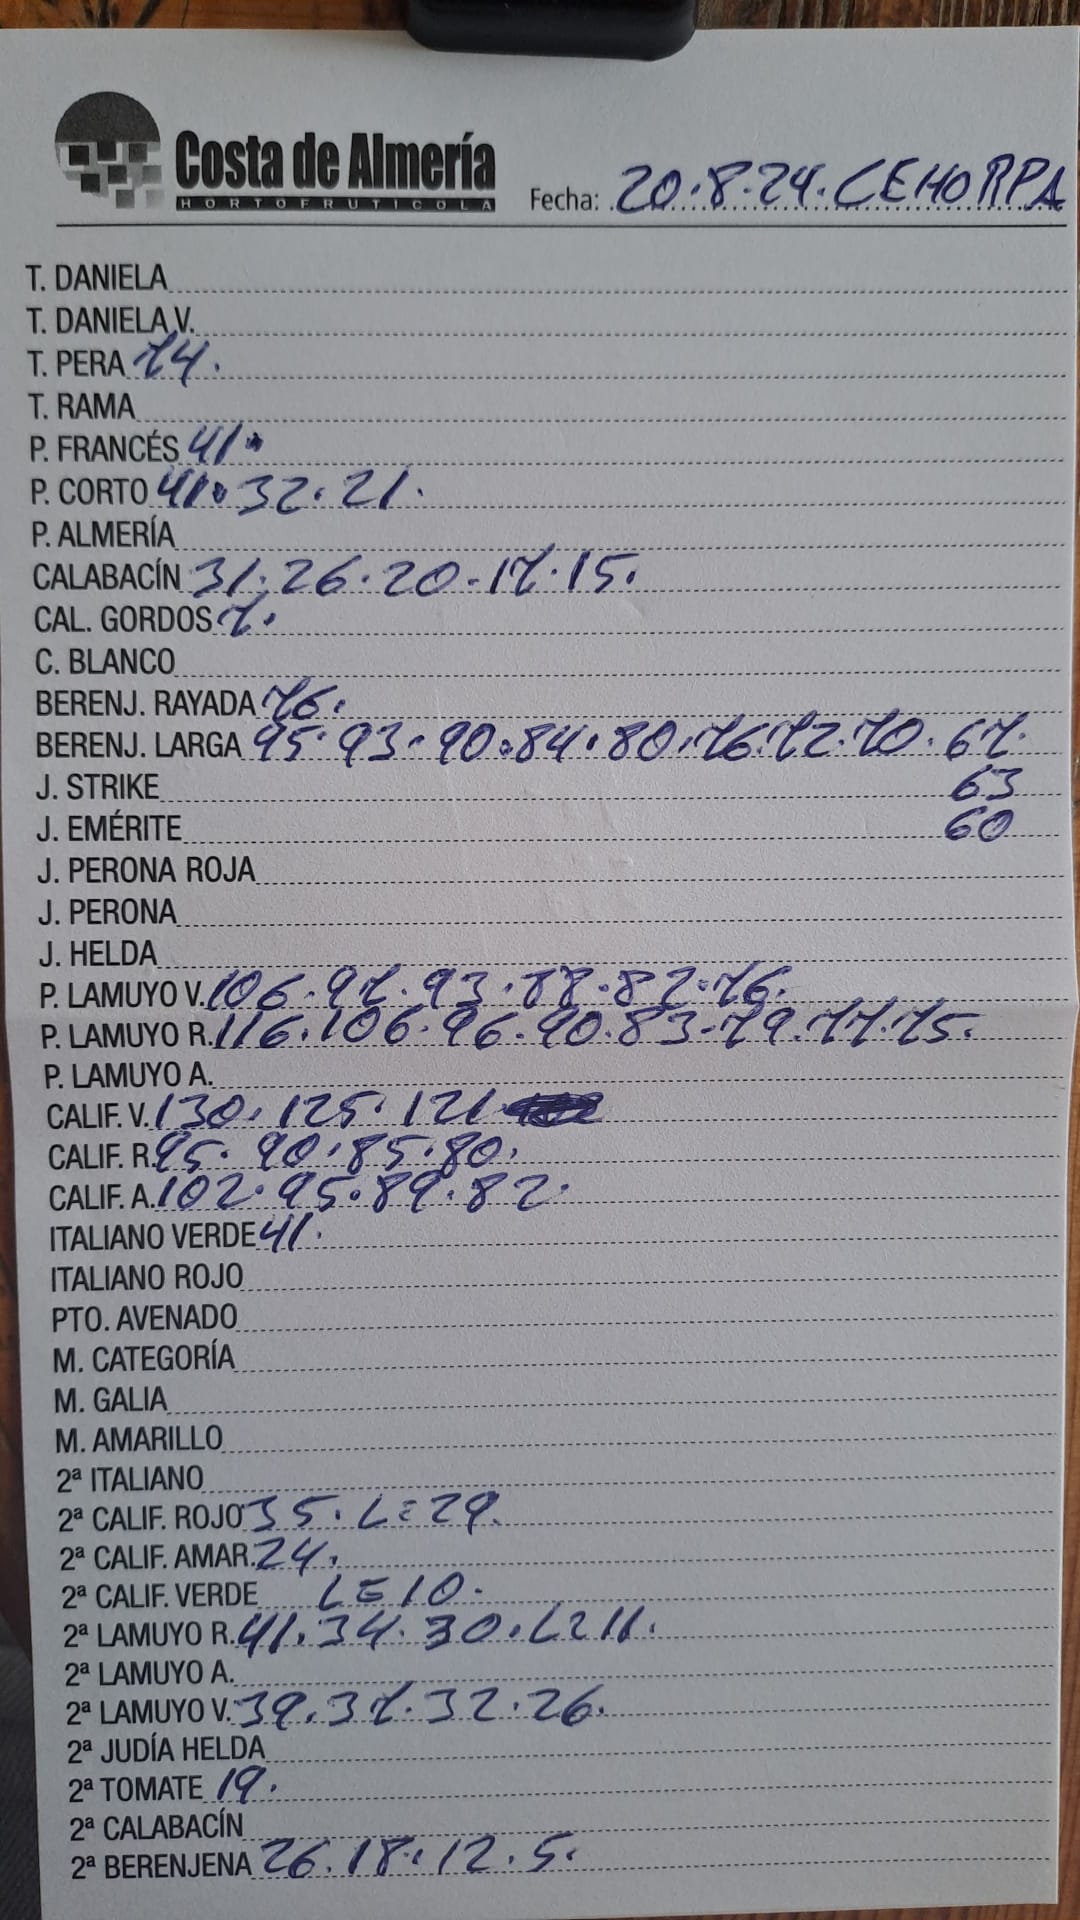 Costa de Almería
HORTOFRUTICOLA
Fecha: 20.8.24. CEHORPA
T. DANIELA
T. DANIELA V.
T. PERA 74.
T. RAMA
P. FRANCÉS 41.
P. CORTO 41. 32. 21.
P. ALMERÍA
CALABACÍN 31. 26. 20. 17. 15.
CAL. GORDOS 7.
C. BLANCO
BERENJ. RAYADA 76.
BERENJ. LARGA 95. 93. 90. 84. 80. 76. 72. 70. 67.
J. STRIKE 63
J. EMÉRITE 60
J. PERONA ROJA
J. PERONA
J. HELDA
P. LAMUYO V. 106. 97. 93. 88. 82. 76.
P. LAMUYO R. 116. 106. 96. 90. 83. 79. 77. 75.
P. LAMUYO A.
CALIF. V. 130. 125. 121
CALIF. R. 95. 90. 85. 80.
CALIF. A. 102. 95. 89. 82.
ITALIANO VERDE 41.
ITALIANO ROJO
PTO. AVENADO
M. CATEGORÍA
M. GALIA
M. AMARILLO
2ª ITALIANO
2ª CALIF. ROJO 35. L=29.
2ª CALIF. AMAR. 24.
2ª CALIF. VERDE L=10.
2ª LAMUYO R. 41. 34. 30. L=11.
2ª LAMUYO A.
2ª LAMUYO V. 39. 37. 32. 26.
2ª JUDÍA HELDA
2ª TOMATE 19.
2ª CALABACÍN
2ª BERENJENA 26. 18. 12. 5.